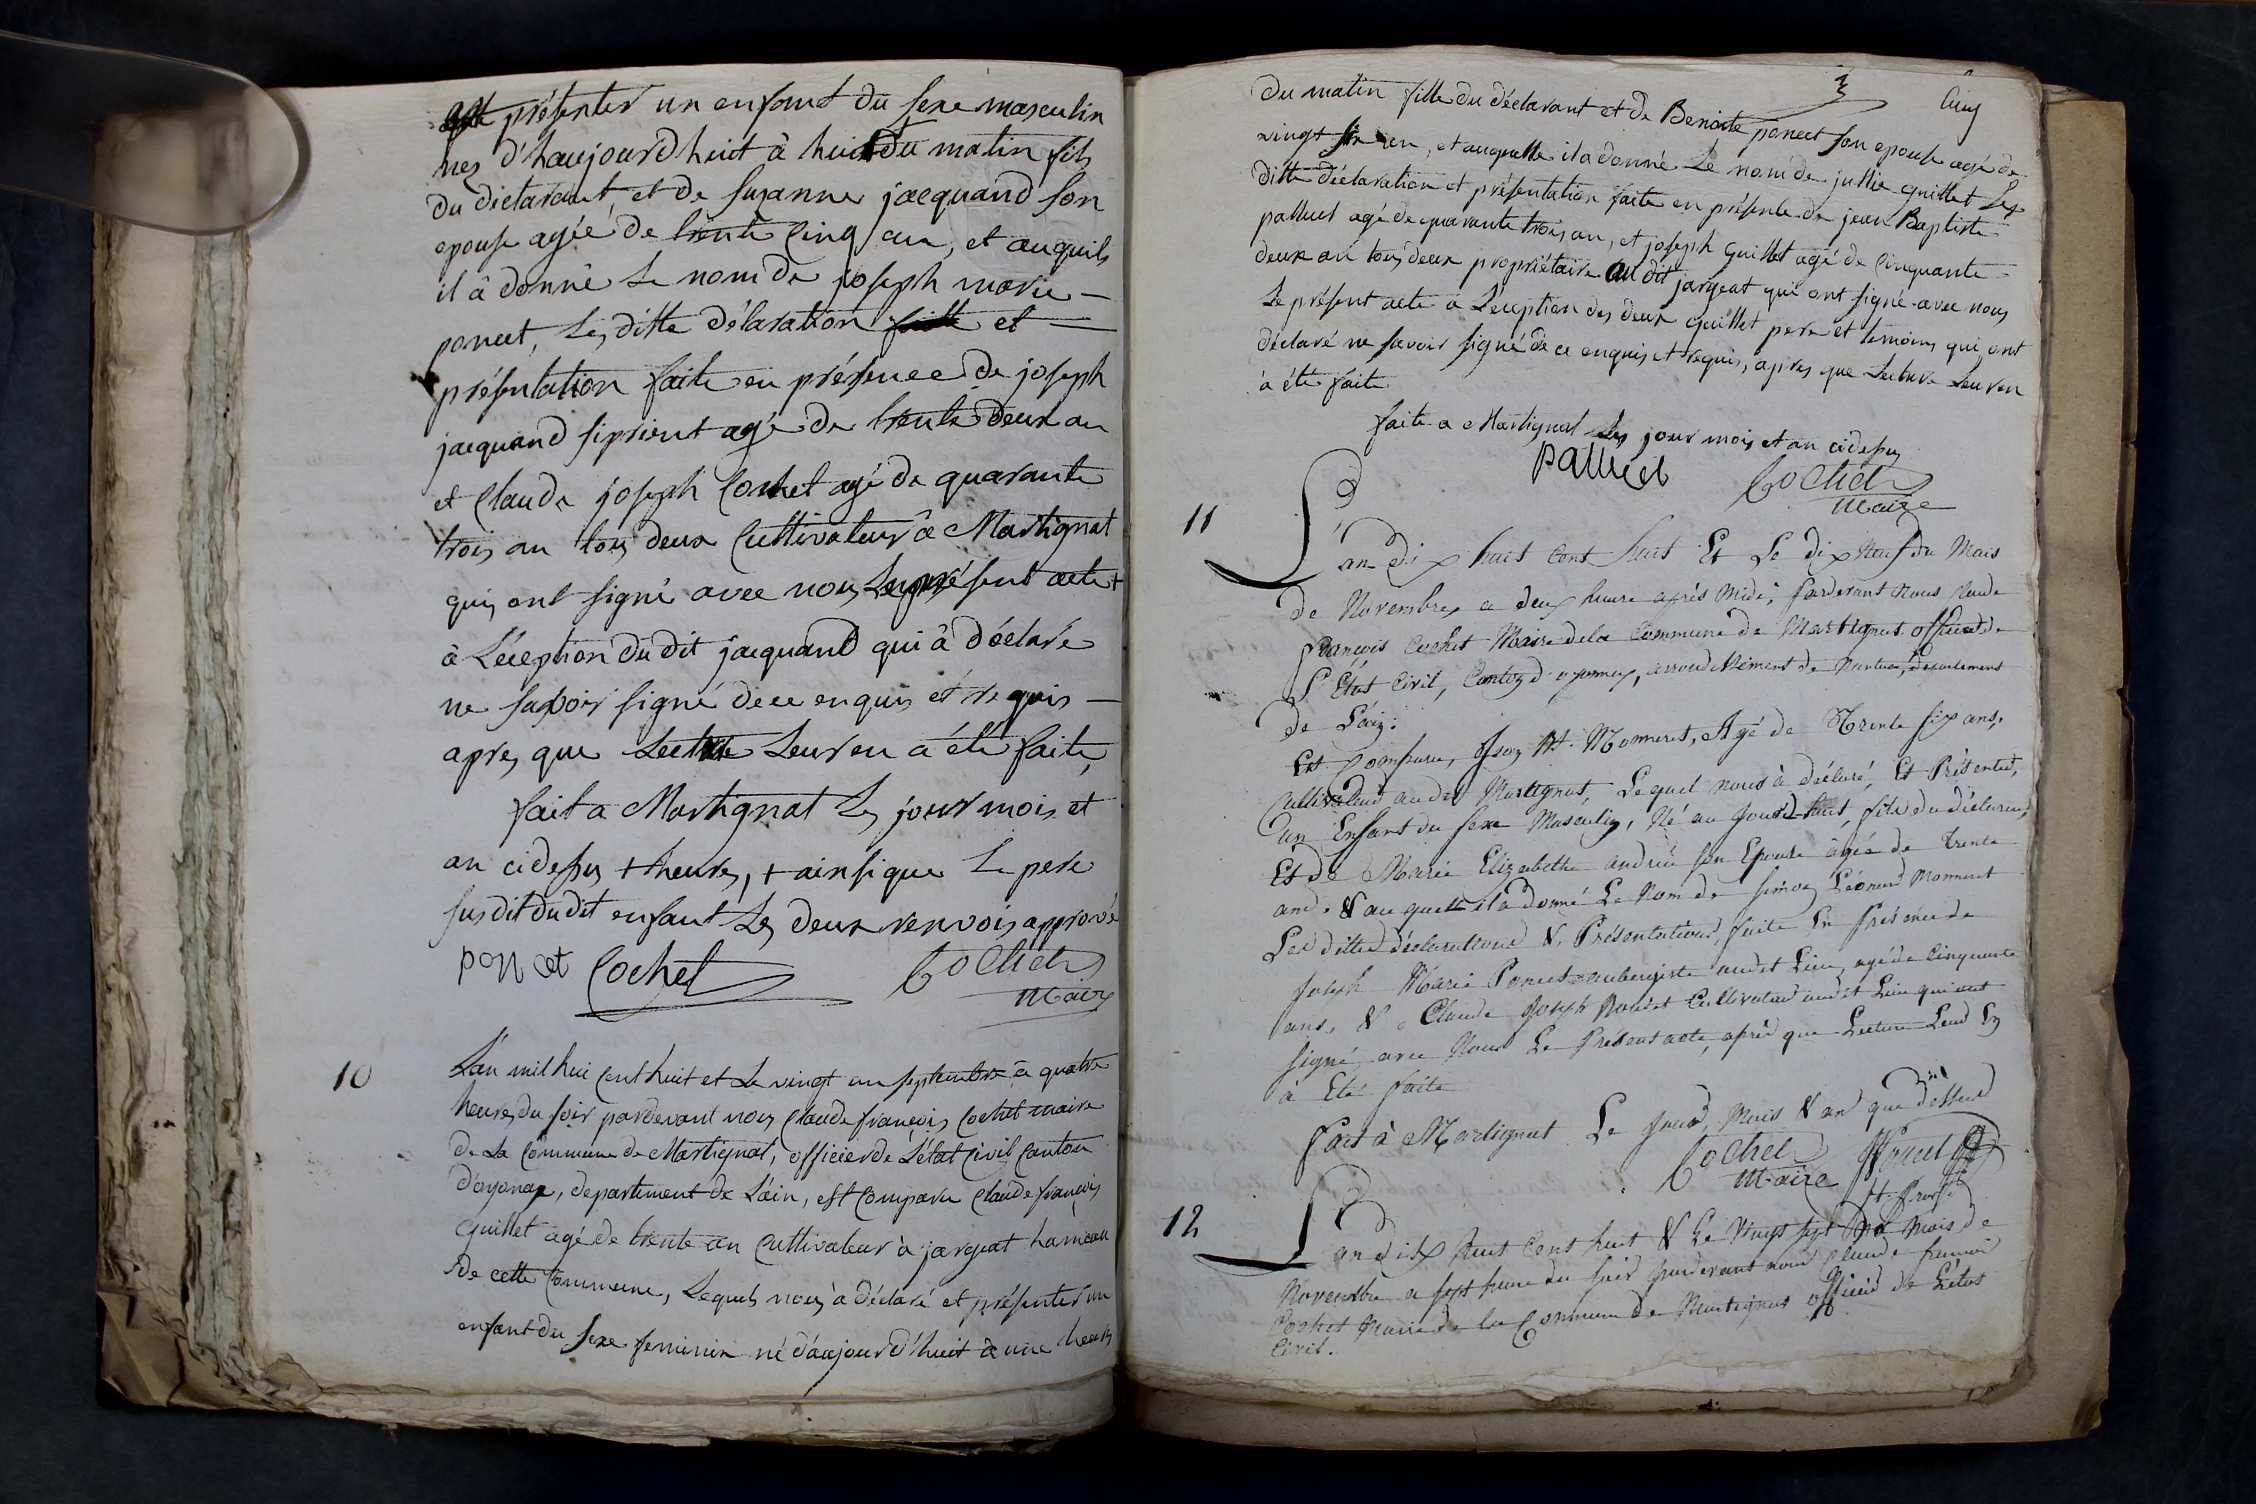 présenter un enfant du sexe masculin
nes d'haujourd huit à huit du matin fils
du déclarant, et de suzanne jacquand son
epouse agée de trente cinq an, et auquils
il â donné le nom de joseph marie —
poncet, les ditte délaration et —
présentation faite en présence de joseph
jacquand siprient agé de trente deux an
et Claude joseph Cochet agé de quarante
trois an tous deux Cultivateur â Martignat
quis ont signé avec nous le présent acte +
â L'éception du dit jacquand qui â déclaré
ne savoir signé de ce enquis et requis —
apres que Lecture Leur en a été faite,
fait a Martignat les jour mois et
an cidessus + heures, + ainsi que le pere
susdit du dit enfant les deux renvois apprové
poncet Cochet Cochet
Maire
10
L'an mil hui Cent huit et le vingt un septembre à quatre
heures du soir pardevant nous Claude françois Cochet maire
de la Commune de Martignat, officier de L'état Civil Canton
d'oyonax, departement de L'ain, est Comparu Claude françois
Guillet agé de trente an Cultivateur à jargeat hameau
de cette Commune, Lequels nous à déclaré et présenter un
enfant du sexe feminin né d'aujourd'huit à une heures
3
du matin fille du déclarant et de Benoite poncet son epouse agé de
vingt an, et auquelle il a donné le nom de jullie guillet les
ditte déclaration et présentation faite en présente de jean Baptiste
palluet agé de quarante trois an, et joseph Guillet agé de Cinquante
deux an tous deux propriétaire au dit jargeat qui ont signé avec nous
Le présent acte a L'éception des deux guillet pere et temoins qui ont
déclaré ne savoir signé de ce enquis et requis, apres que Lecture Leur en
à été faite
faite a Martignat les jour mois et an cidessus
palluet Cochet
Maire
11
L'an dix huit Cent huit Et Le dix Neuf du Mois
de Novembre a deux heure après Midi, pardevant Nous Claude
françois Cochet Maire de la Commune de Martignat officier de
L'État Civil, Canton d'oyonnax, arrondissement de Nantua, département
de L'ain:
Est Comparu, Monneret, Agé de Trente six ans,
Cultivateur audit Martignat, Lequel nous à déclaré, Et Présenter,
un Enfant du sexe Masculin, Né au Jourd-huit, fils du déclarant,
Et de Marie Elizabethe andrié son Epouse âgée de Trente
ans. & au quelle il a donné Le Nom de simon Léonard Monneret
Les dittes déclarations & Présentations, faite En présence de
Joseph Marie Poncet aubergiste audit Lieu, agé de Cinquante
ans, & Claude Joseph Cultivateur audit Lieu qui ont
signé avec Nous Le Présent acte, après que Lecture Leur En
à Eté faite
fait à Martignat Le Jour, Mois & an que dessus
Cochet Poncet
Maire
12
L'an dix huit Cent huit & Le Vingt sept du Mois de
Novembre a sept heure du soir pardevant nous Claude francois
Cochet Maire de la Commune de Martignat officier de L'état
Civil.